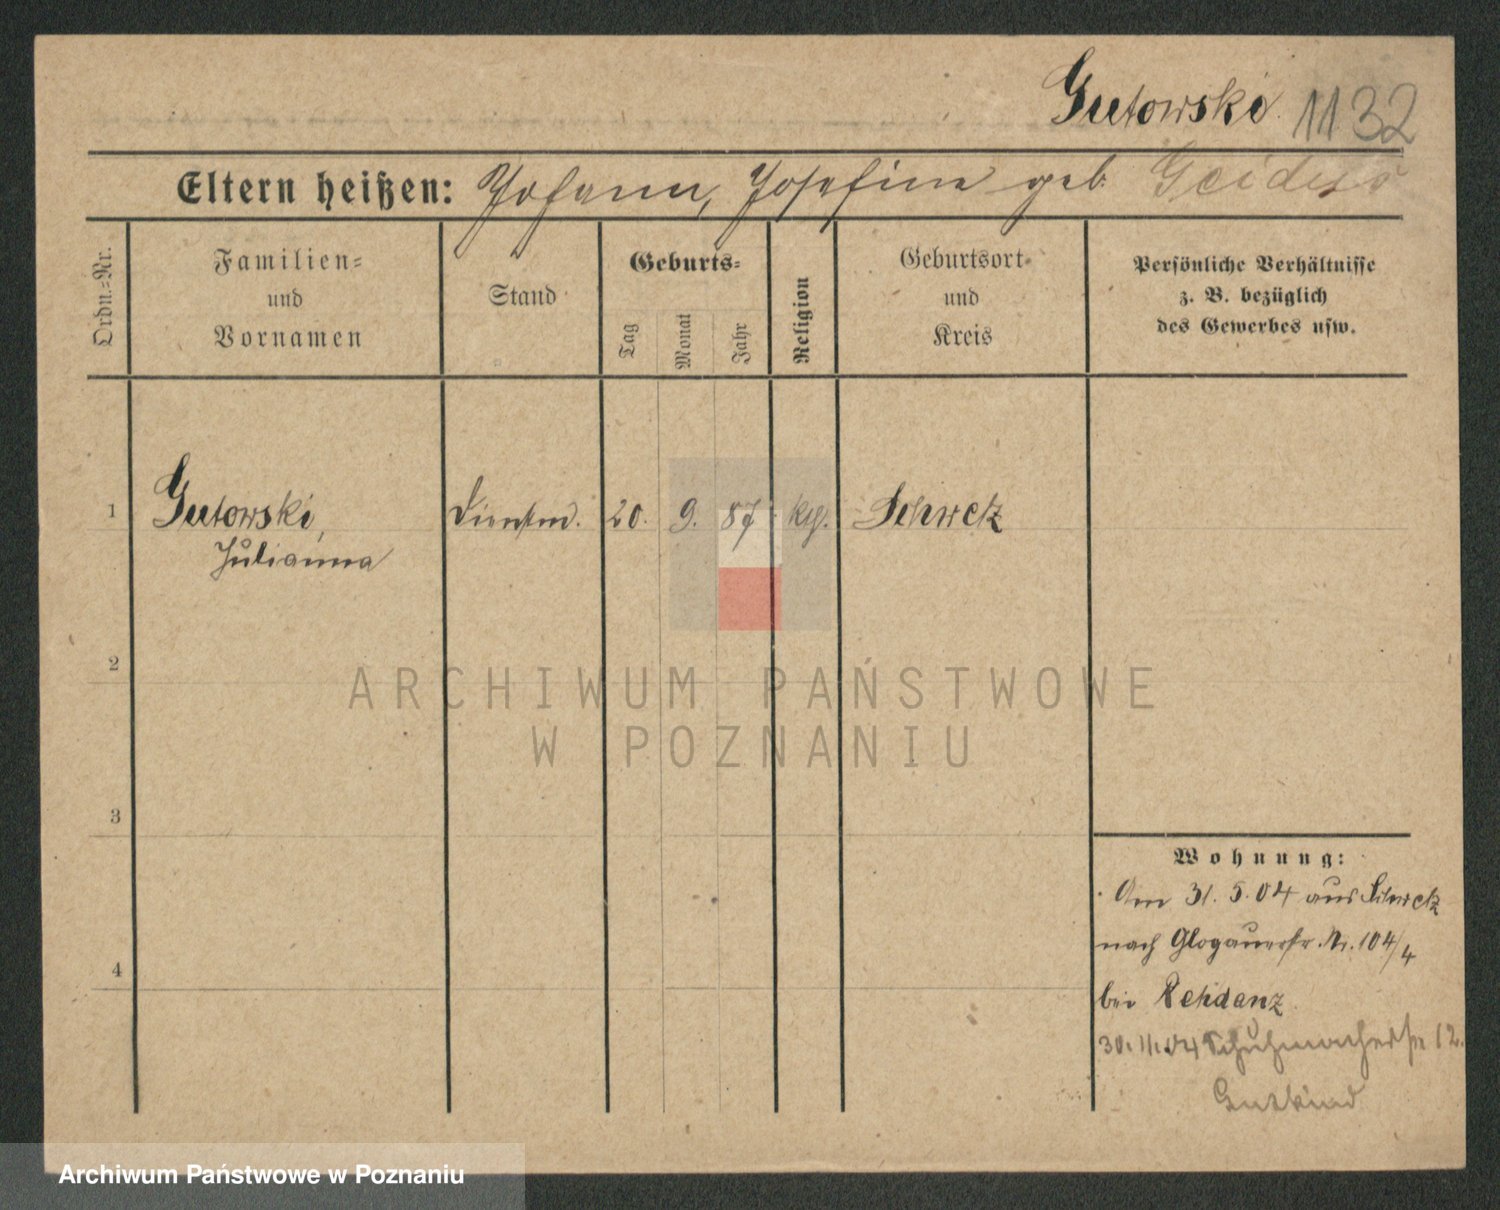 Gutowski 1132
Eltern heißen: Johann, Josefine geb.
Ordn.=Nr.
Familien=
und
Vornamen
Stand
Geburts=
Tag
Monat
Jahr
Religion
Geburtsort
und
Kreis
Persönliche Verhältnisse
z. B. bezüglich
des Gewerbes usw.
1 Gutowski, Dienstm. 20. 9. 87 kth. Schwetz
Julianna
2
ARCHIWUM PAŃSTWOWE
W POZNANIU
3
Wohnung:
Am 31. 5. 04 aus Schwetz
nach Glogauerstr. Nr. 104/4
4
bei Rehdanz
30. 11. 04 Schuhmacherstr 12.
Gutkind
Archiwum Państwowe w Poznaniu